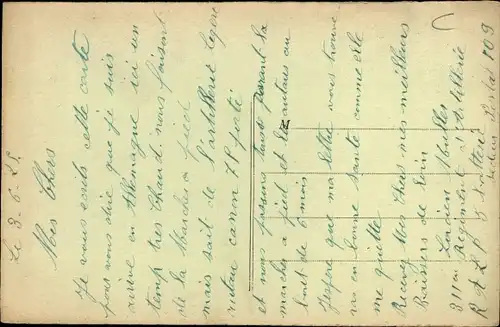 Le 3-6-25
Mes Chers
Je vous écrits cette carte
pour vous dire que je suis
arrivé en Allemagne ici un
temp très chaud. nous faisont
de la Marches a pied
mais sait de l'artillerie legère
canon 75 porté
et nous passons tous pasant la
marches a pied et les autans au
bout de 6 mois
J'espère que ma lettre vous trouve
ras en bonne santé comme elle
me quitte
Recevez Mes Chers mes meilleurs
Baissers de loin
Louis
311 em Regiment d'artillerie
R A L P 5 Batterie
109